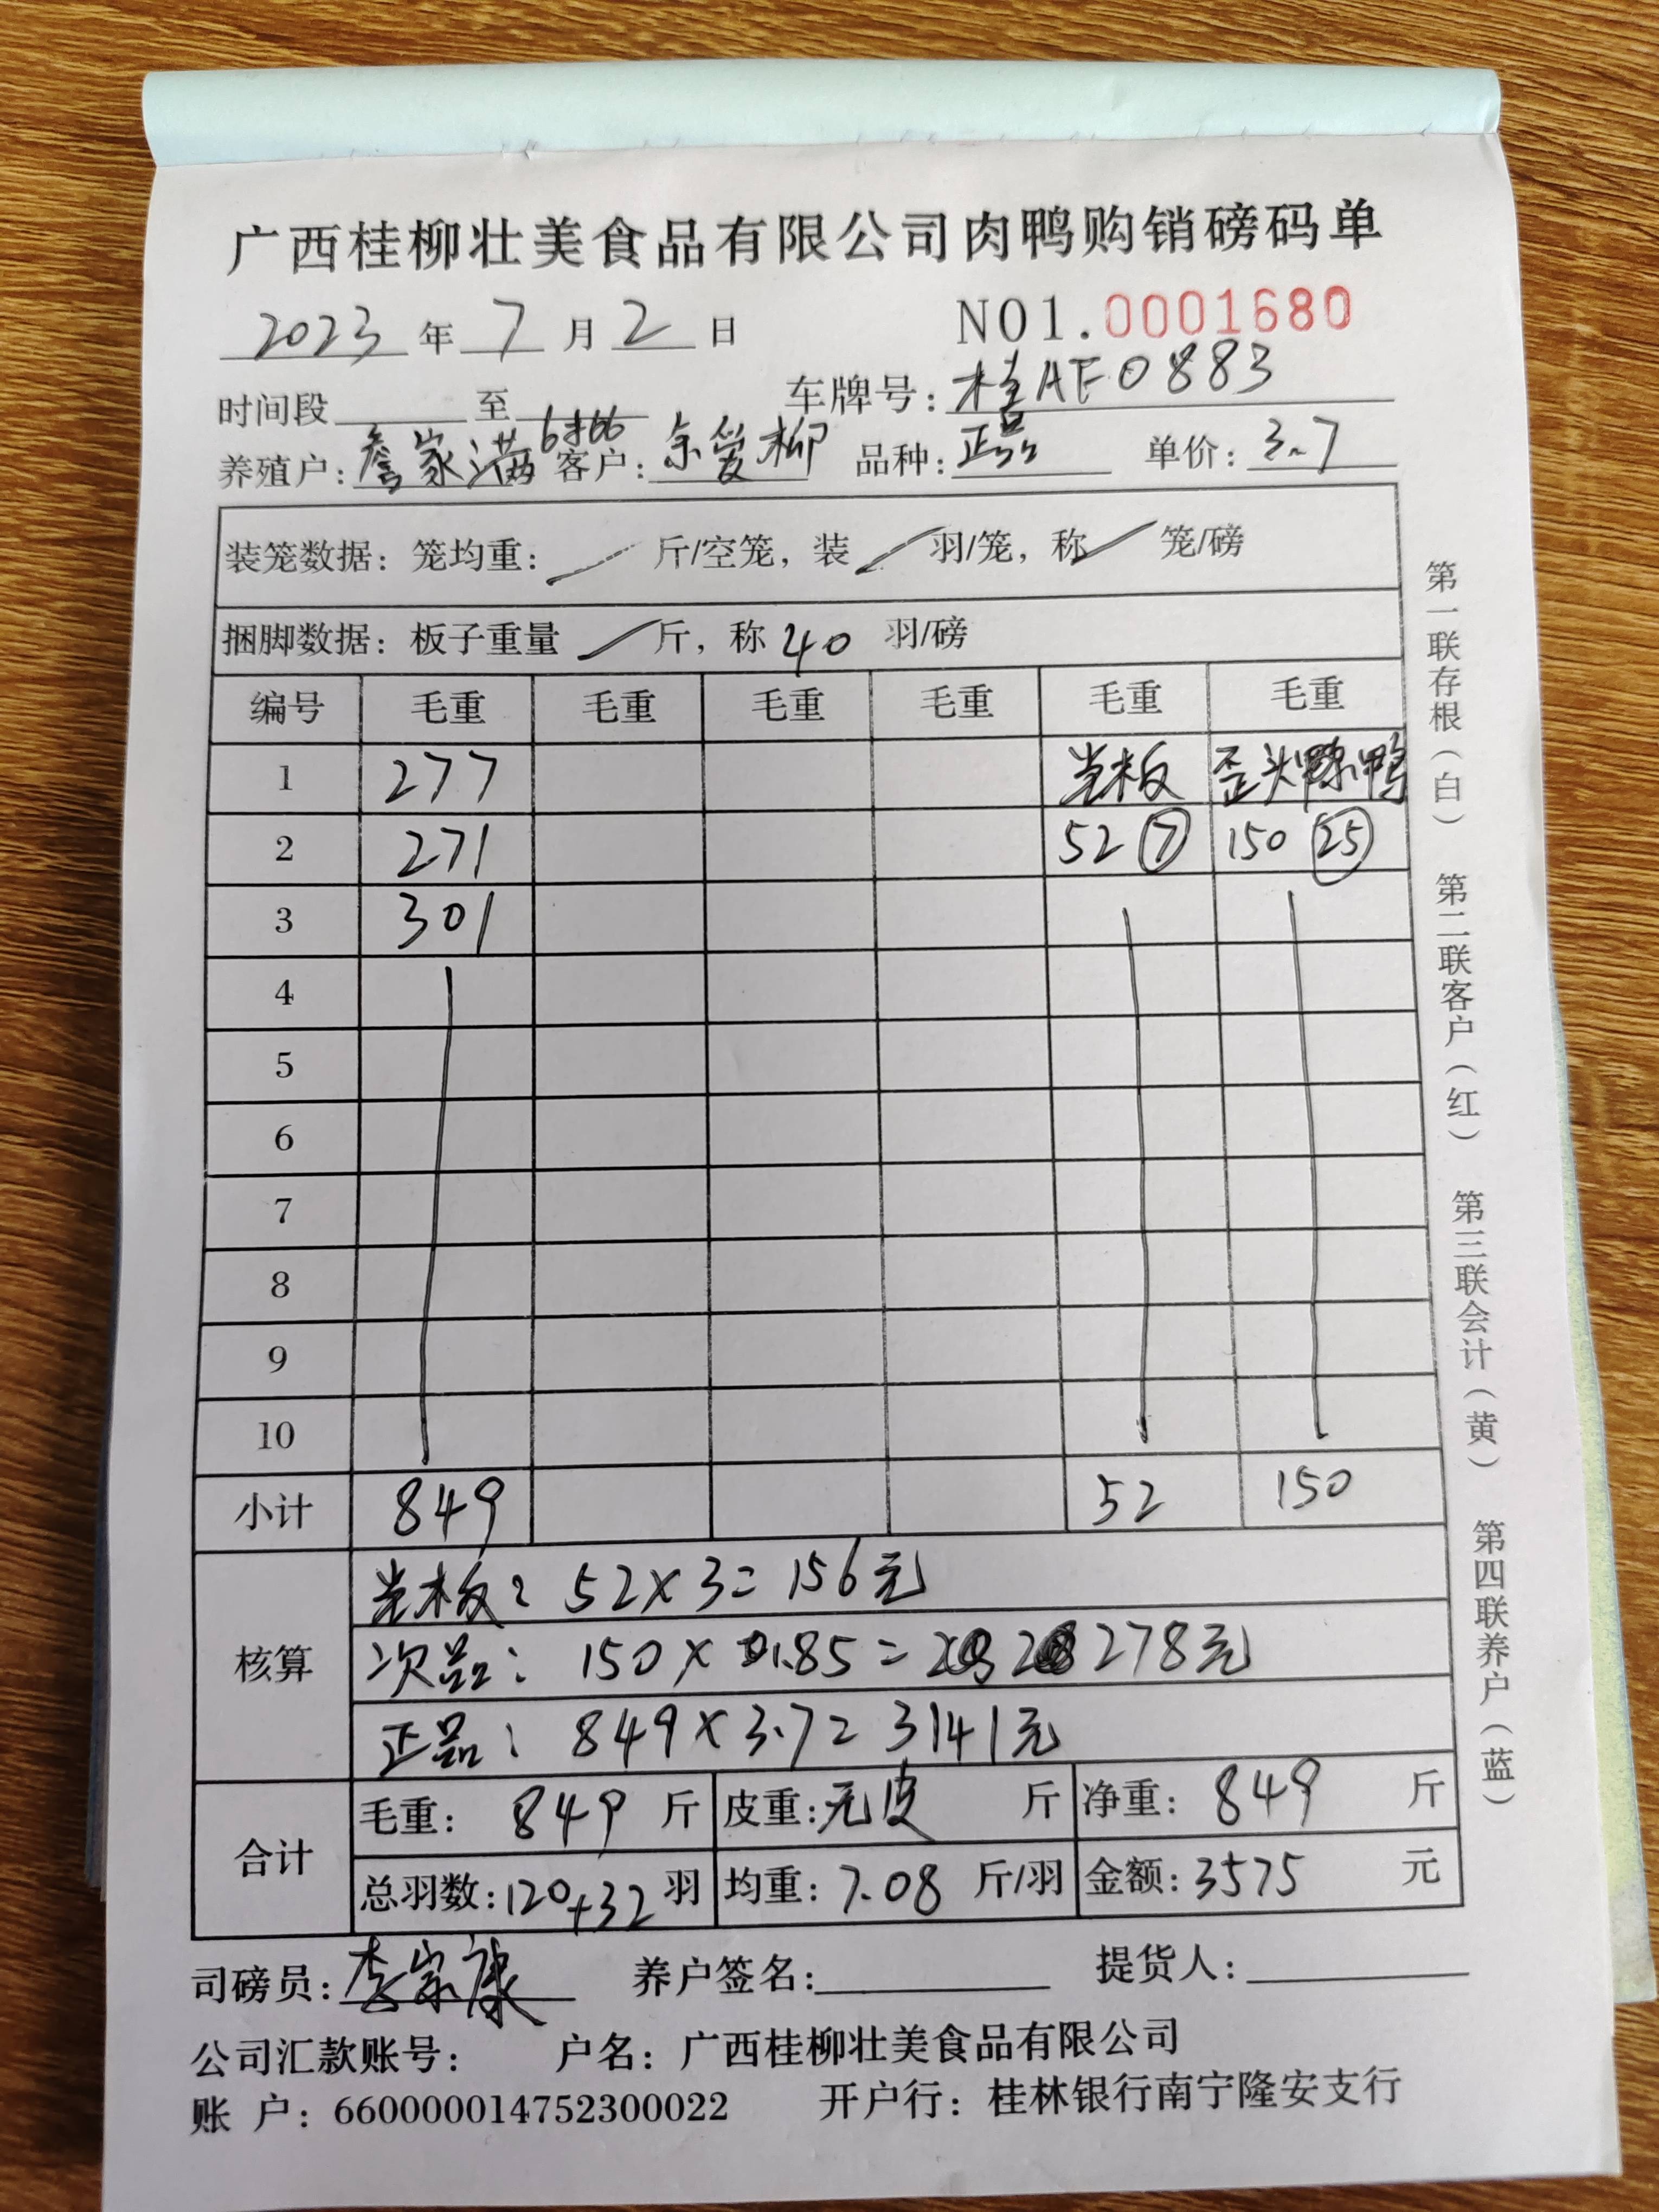 广西桂柳壮美食品有限公司肉鸭购销磅码单
2023 年 7 月 2 日 NO1.0001680
时间段 至 车牌号: 桂AF0883
养殖户: 詹家满 客户: 余爱柳 品种: 正品 单价: 3.7
装笼数据: 笼均重: 斤/空笼, 装 羽/笼, 称 笼/磅
捆脚数据: 板子重量 斤, 称 40 羽/磅
编号 毛重 毛重 毛重 毛重 毛重 毛重
1 277 光板 歪头 鸭
2 271 52 ⑦ 150 ㉕
3 301
4
5
6
7
8
9
10
小计 849 52 150
核算
光板: 52×3=156元
次品: 150×1.85= 278元
正品: 849×3.7=3141元
合计
毛重: 849 斤 皮重: 无皮 斤 净重: 849 斤
总羽数: 120+32 羽 均重: 7.08 斤/羽 金额: 3575 元
司磅员: 李宗康 养户签名: 提货人:
公司汇款账号: 户名: 广西桂柳壮美食品有限公司
账 户: 660000014752300022 开户行: 桂林银行南宁隆安支行
第一联存根(白) 第二联客户(红) 第三联会计(黄) 第四联养户(蓝)